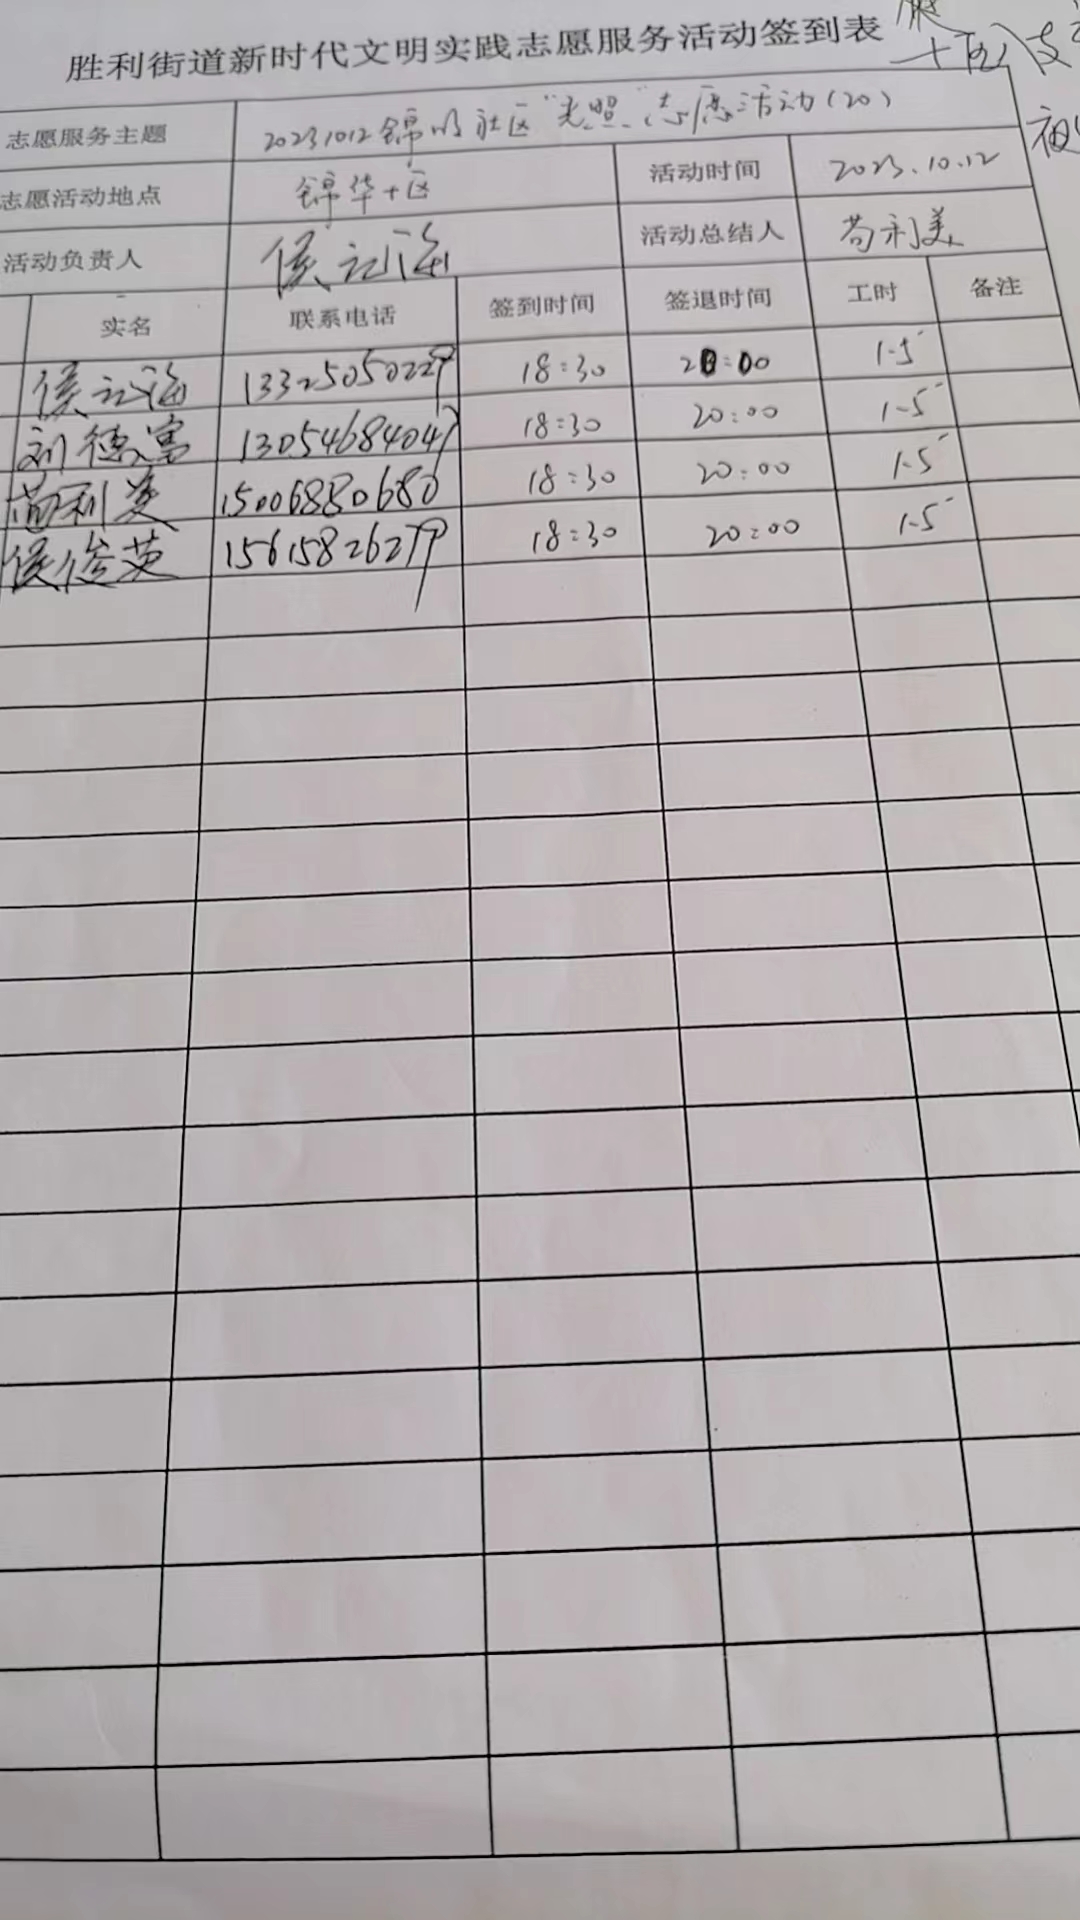 胜利街道新时代文明实践志愿服务活动签到表
志愿服务主题 20231012锦明社区"光照"志愿活动(20)
志愿活动地点 锦华十区 活动时间 2023.10.12
活动负责人 侯立海 活动总结人 苟利美
实名 联系电话 签到时间 签退时间 工时 备注
侯立海 13325050229 18:30 20:00 1.5
刘德富 13054684049 18:30 20:00 1.5
苟利美 15006880680 18:30 20:00 1.5
侯俊英 15615826279 18:30 20:00 1.5